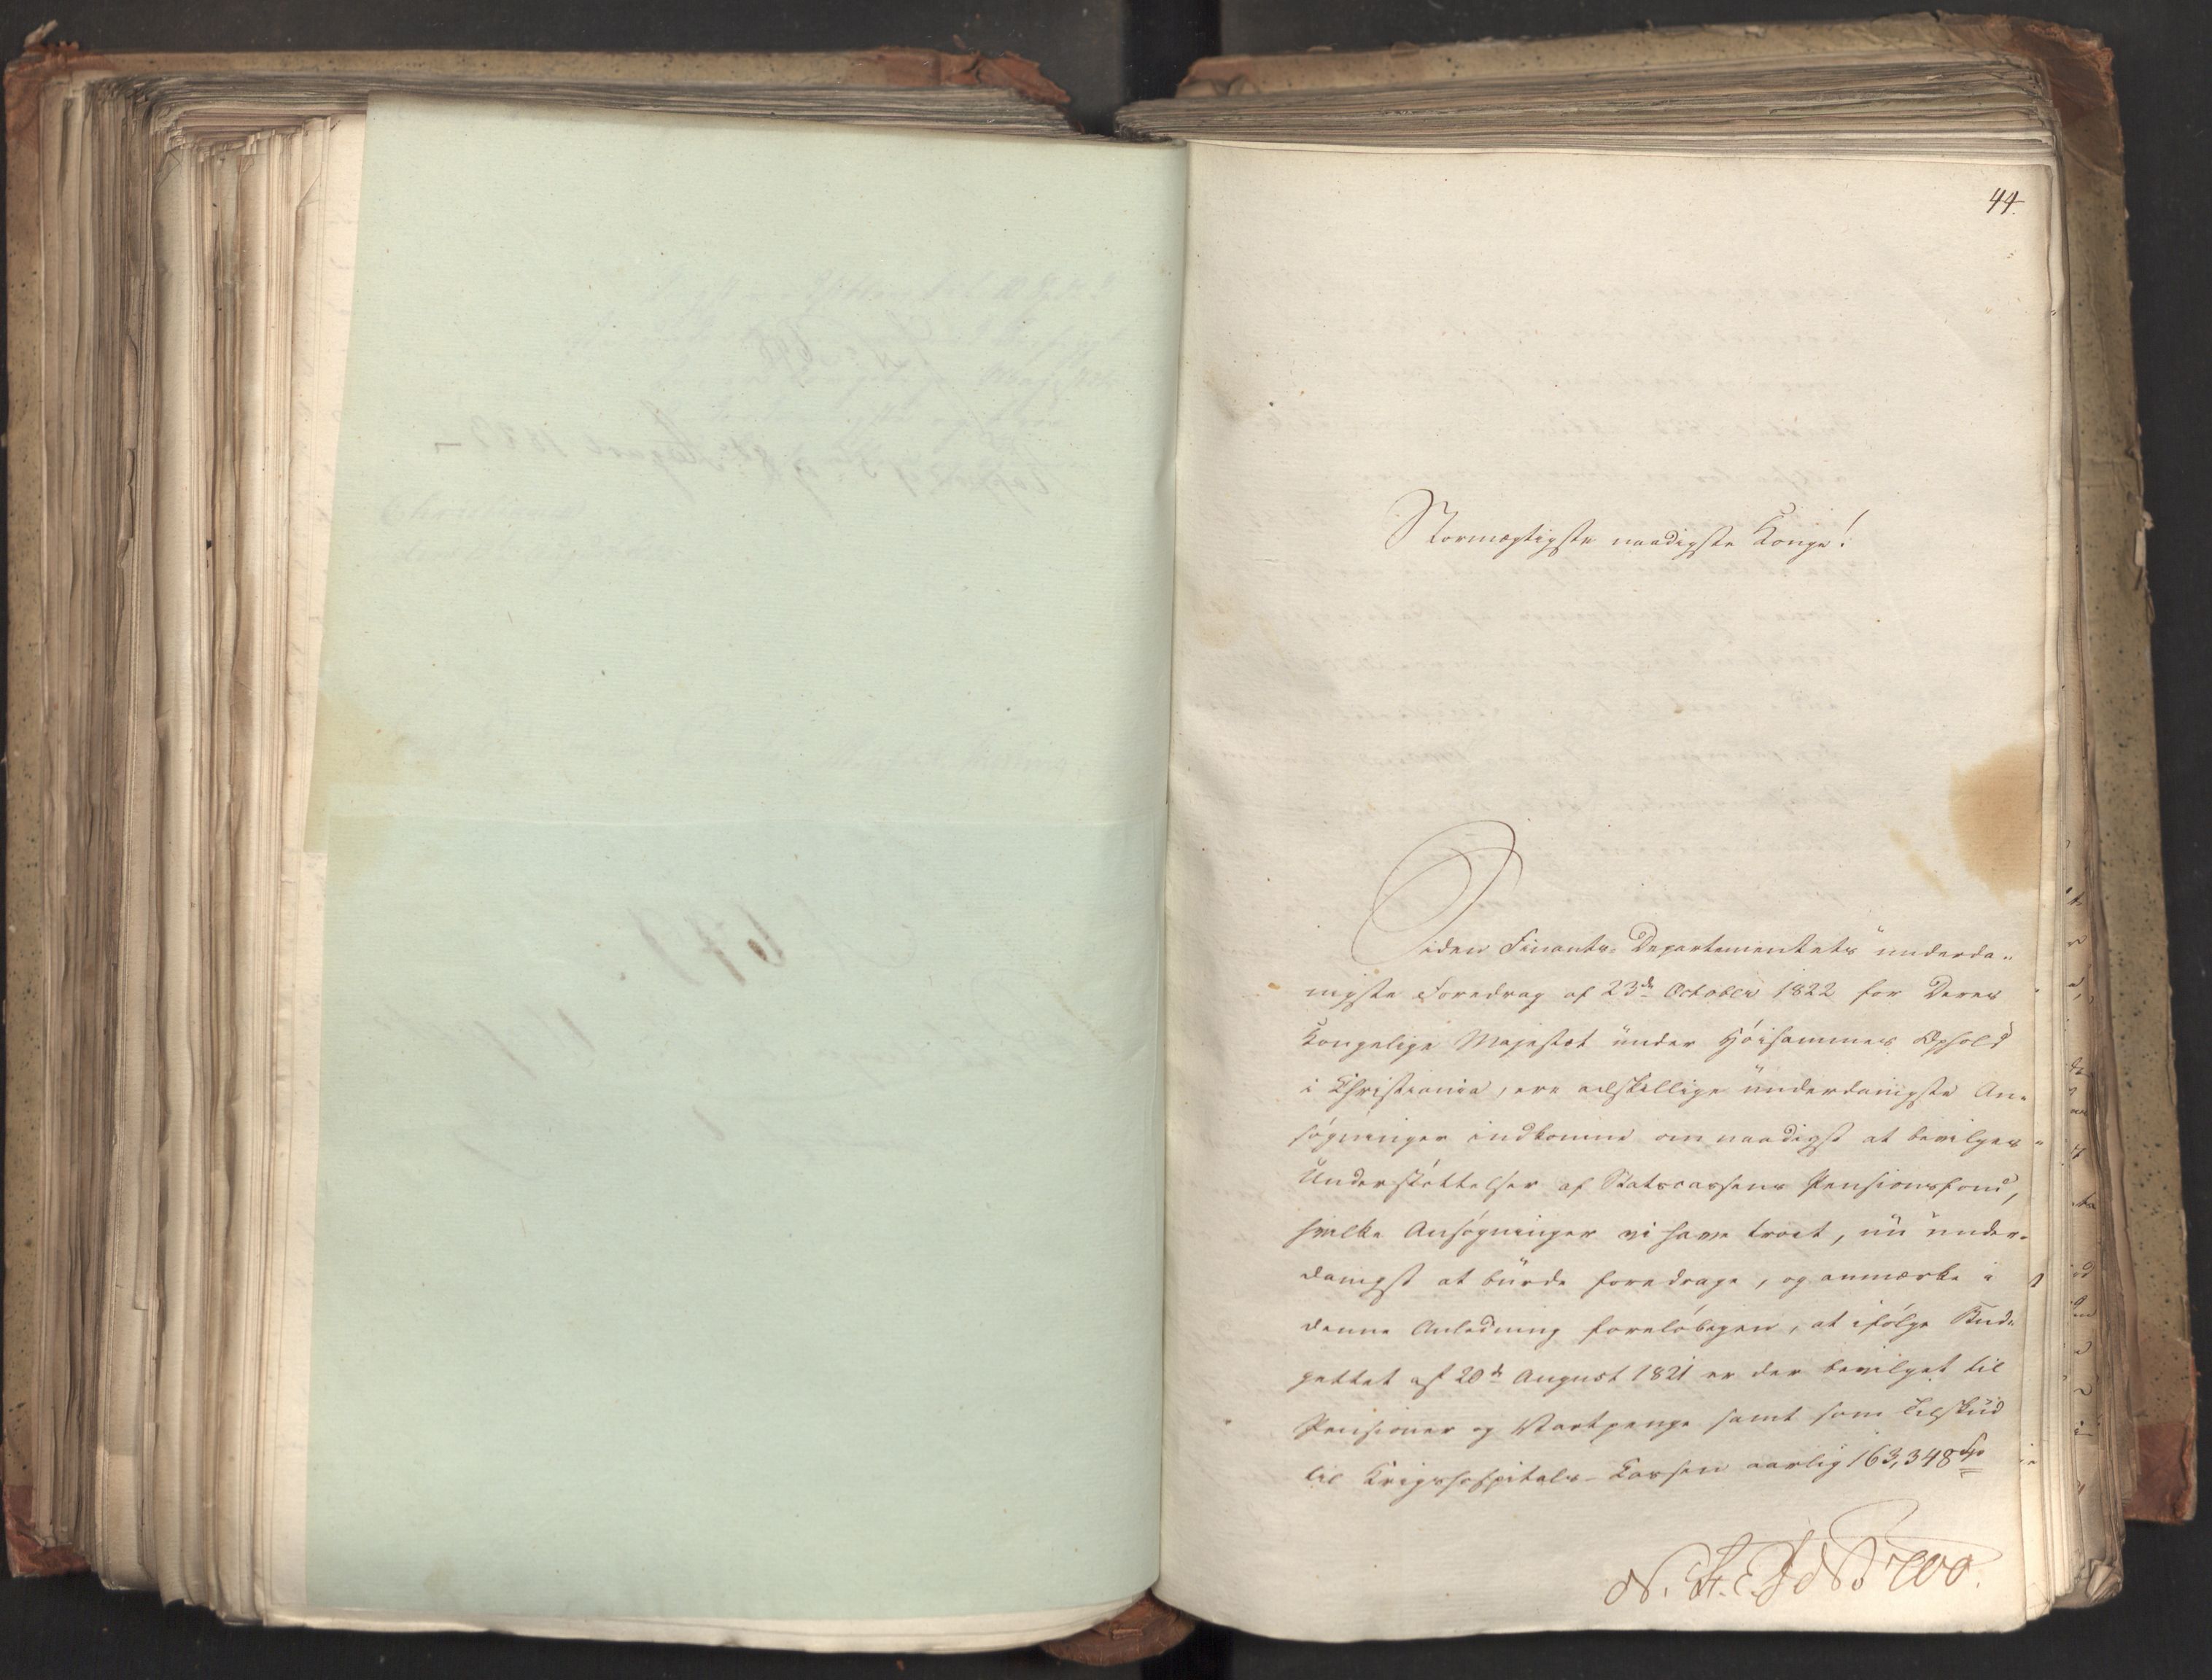 44.
Stormægtigste naadigste Konge!
Siden Finants-Departementets underda„
nigste Foredrag af 23de October 1822 for Deres
Kongelige Majestæt under Høisammes Ophold
i Christiania, ere adskillige underdanigste An„
søgninger indkomne om naadigst at bevilges
Understøttelser af Statscassens Pensionsfond,
hvilke Ansøgninger vi have troet, nu under„
danigst at burde foredrage, og anmærke i
denne Anledning foreløbigen, at ifølge Bud„
gettet af 20de August 1821 er der bevilget til
Pensioner og Vartpenge samt som Tilskud
til Krigshospitals-Cassen aarlig 163,348 Sp